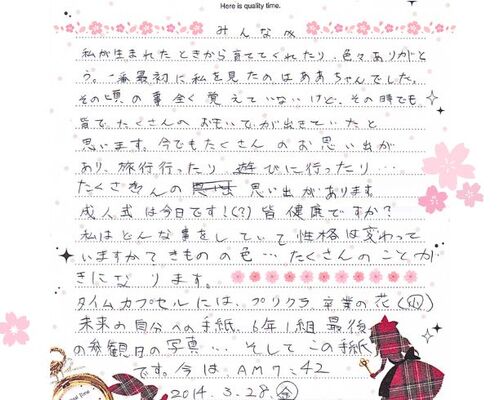 Here is quality time.
みんなへ
私が生まれたときから育ててくれたり、色々ありがと
う。一番最初に私を見たのはああちゃんでした。
その頃の事全く覚えていないけど、その時でも
皆で、たくさんのおもいでが出きていたと
思います。今でもたくさんのお思い出が
あり、旅行行ったり、遊びに行ったり…
たくさんの 思い出があります
成人式は今日です!(?)皆健康ですか?
私はどんな事をしていて性格は変わって
いますかできもの色…たくさんのことが
きになります。
タイムカプセルには、プリクラ 卒業の花
未来の自分への手紙、6年1組最後
の参観日の写真…そしてこの手紙
です。今はAM7:42
2014.3.28.金